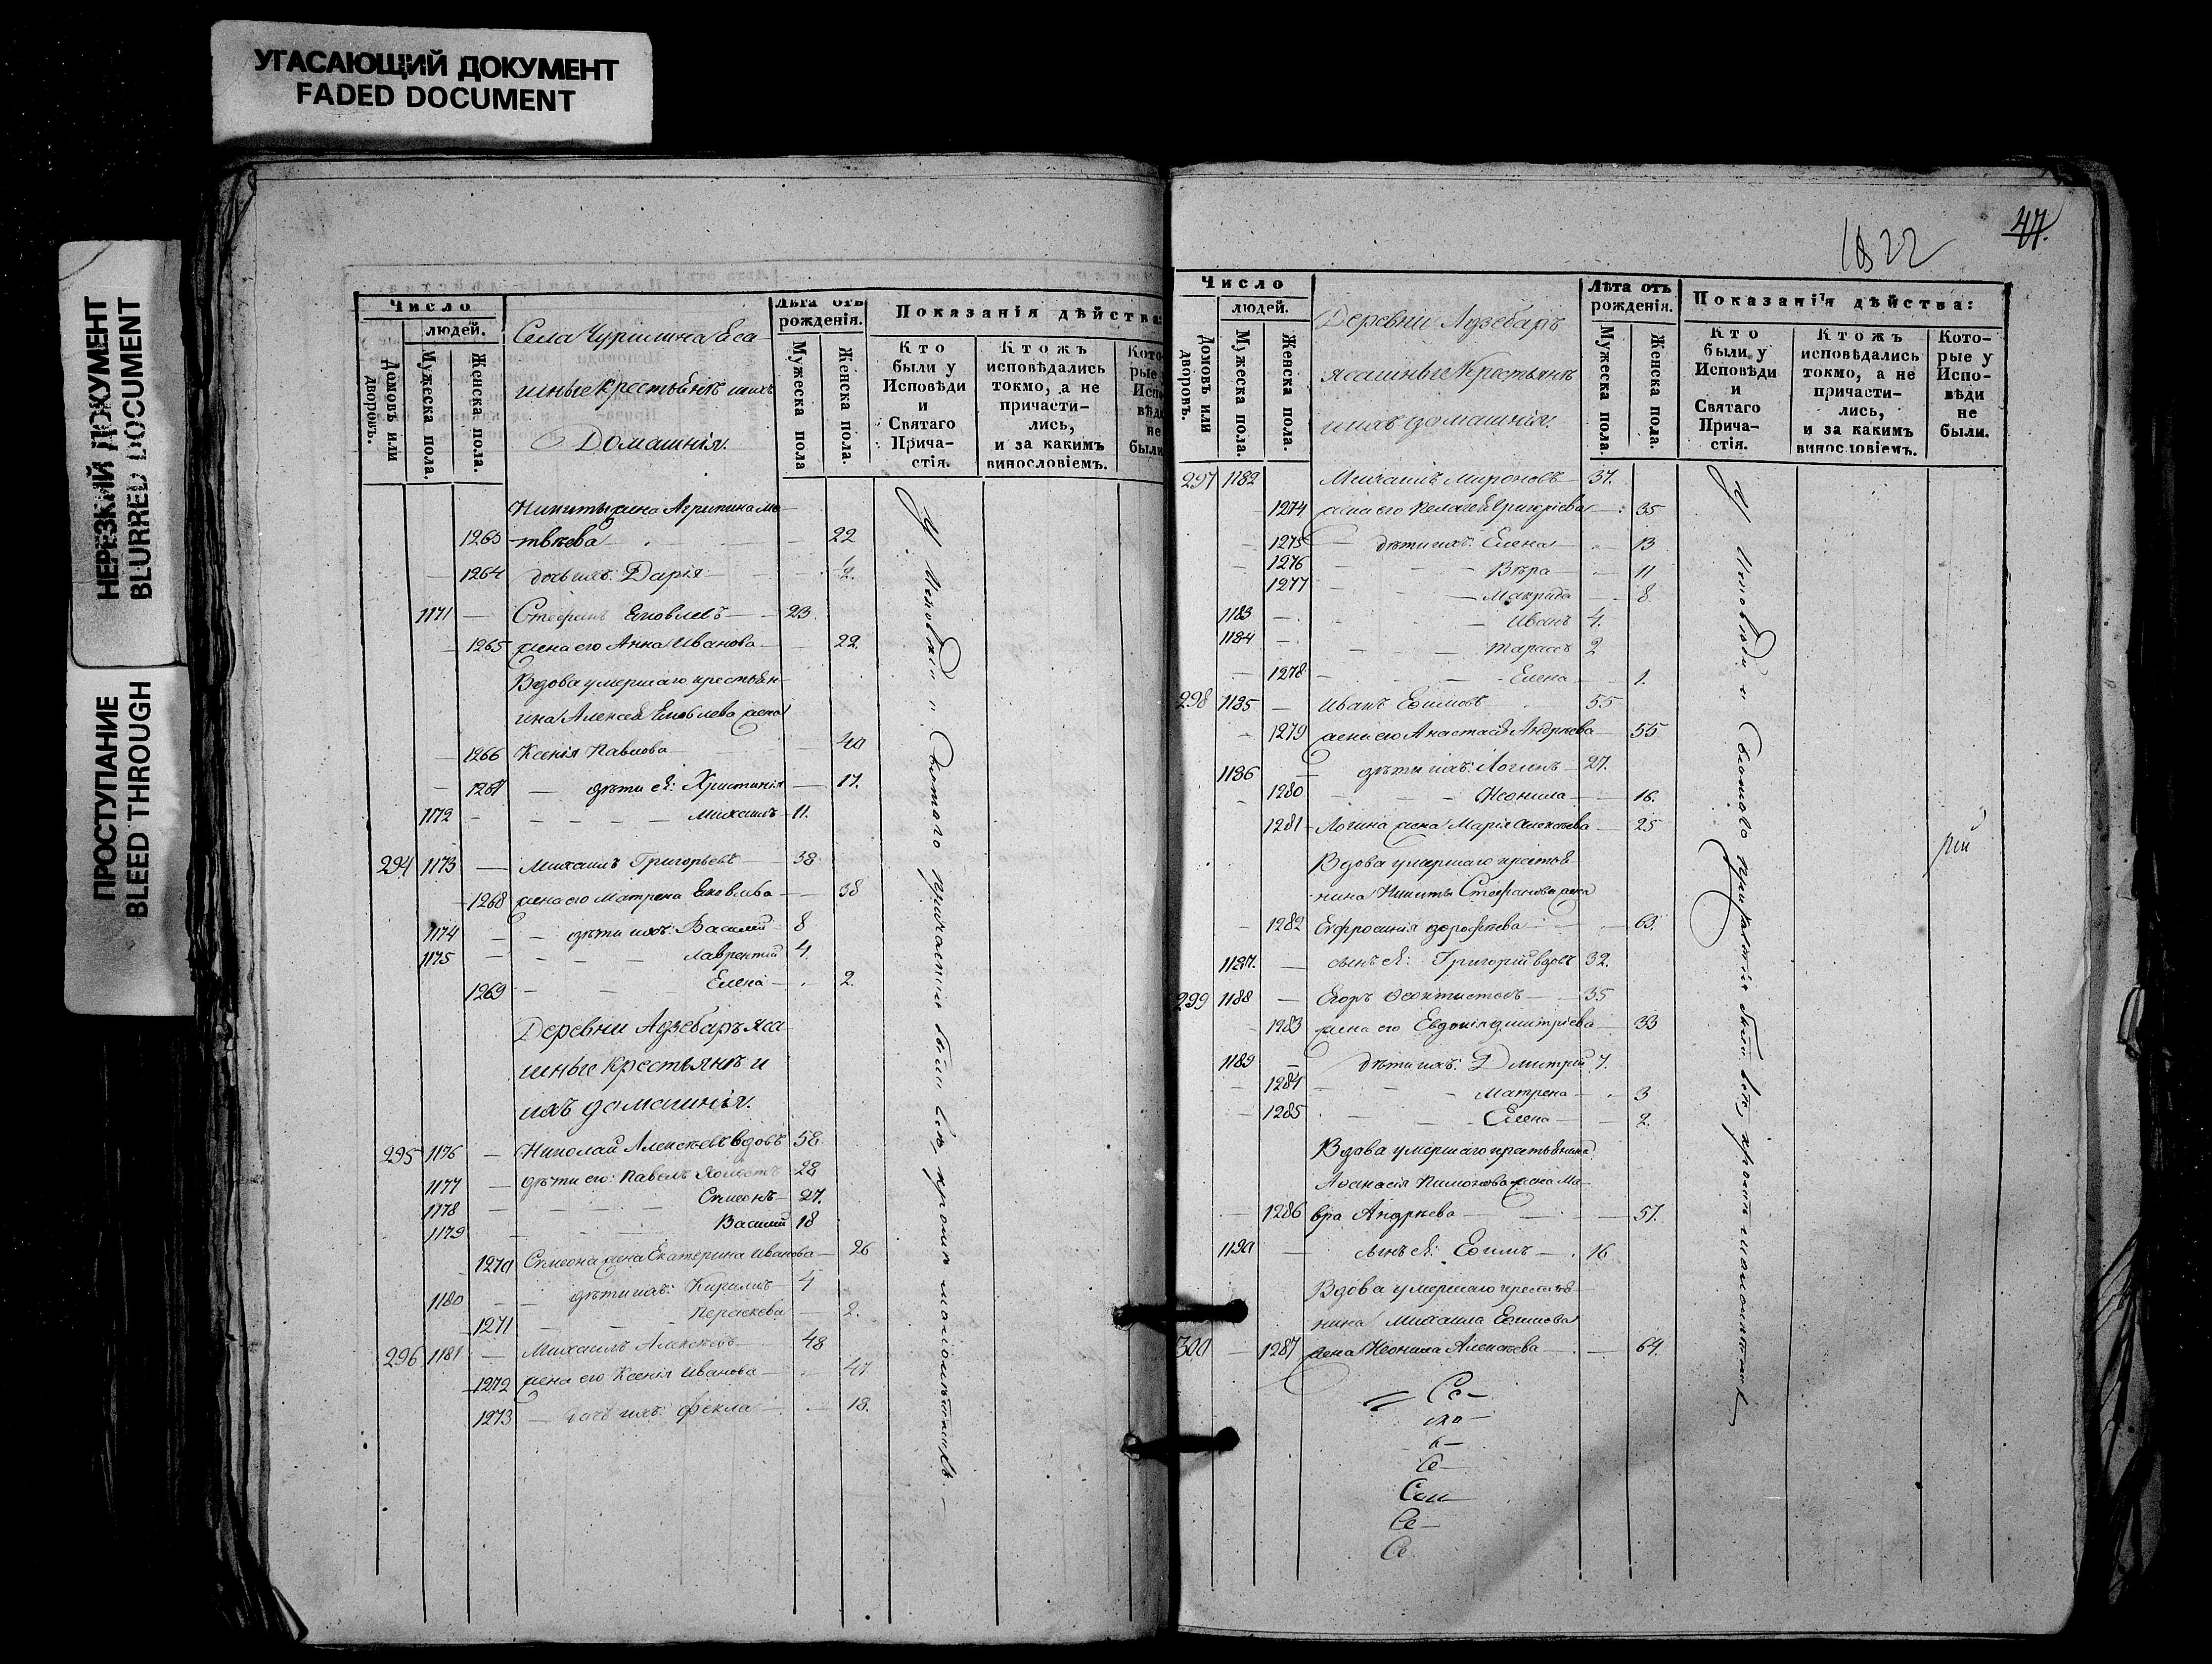 УГАСАЮЩИЙ ДОКУМЕНТ
FADED DOCUMENT
НЕРЕЗКИЙ ДОКУМЕНТ
BLURRED DOCUMENT
ПРОСТУПАНИЕ
BLEED THROUGH
Число
людей.
Домовъ или дворовъ.
Мужеска пола.
Женска пола.
Села Чурилина Еса-
шные крестьянѣ ихъ
Домашнія.
Лѣта отъ
рожденія.
Мужеска пола
Женска пола.
Показанія дѣйства:
Кто
были у
Исповѣди
и
Святаго
Прича-
стія.
Ктожъ
исповѣдались
токмо, а не
причасти-
лись,
и за какимъ
винословіемъ.
Кото-
рые у
Испо
вѣди
не
были
Никиты жена Агрипина Ма-
1263 твѣева 22
1264 дочь ихъ: Дарія 2.
1171 Стефанъ Яковлевъ 23.
1265 жена его Анна Иванова 22.
Вдова умершаго крестьян-
ина Алексея Яковлева жена
1266 Ксенія Павлова 40
1267 дѣти ея: Христинія 17.
1172 Михаилъ 11.
294 1173 Михаилъ Григорьевъ 38
1268 жена его Матрена Яковлева 38
1174 дѣти ихъ: Василий 8
1175 Лаврентий 4.
1269 Елена 2.
Деревни Адзебаръ яса-
шные крестьянѣ и
ихъ домашнія.
295 1176 Николай Алексѣевъ вдовъ 58
1177 дѣти его: Павелъ Холостъ 28
1178 Симеонъ 27.
1179 Василий 18
1270 Симеона жена Екатерина Иванова 26
1180 дѣти ихъ: Кирилъ 4
1271 Параскева 2.
296 1181 Михаилъ Алексѣевъ 48
1272 жена его Ксенія Иванова 47
1273 дочь ихъ: Фекла 18.
У Исповѣди и Святаго причастія были всѣ, кромѣ малолѣтныхъ.
1822
47.
Число
людей.
Домовъ или дворовъ.
Мужеска пола.
Женска пола.
Деревни Адзебаръ
ясашные Крестьянѣ
ихъ домашнія.
Лѣта отъ
рожденія.
Мужеска пола.
Женска пола.
Показанія дѣйства:
Кто
были у
Исповѣди
и
Святаго
Прича-
стія.
Ктожъ
исповѣдались
токмо, а не
причасти-
лись,
и за какимъ
винословіемъ.
Кото-
рые у
Испо-
вѣди
не
были.
297 1182 Михаилъ Мироновъ 37.
1274 жена его Пелагея Григорієва 35
1275 дѣти ихъ: Елена 13
1276 Вѣра 11
1277 Макрида 8.
1183 Иванъ 4.
1184 Тарасъ 2
1278 Елена 1.
298 1185 Иванъ Ефимовъ 55
1279 жена его Анастасія Андрѣева 55
1186 дѣти ихъ: Логинъ 27.
1280 Неонила 16.
1281 Логина жена Марія Алексѣева 25
Вдова умершаго крестья-
нина Никиты Стефанова жена
1282 Ефросинія Дорофѣева 63.
1187. сынъ ея: Григорий вдовъ 32.
299 1188 Егоръ Феоктистовъ 35
1283 жена его Евдокія Дмитріева 33
1189 дѣти ихъ: Дмитрий 7.
1284 Матрена 3
1285 Елена 2.
Вдова умершаго крестьянина
Афанасія Пимонова жена Ма-
1286 вра Андрѣева 57.
1190 сынъ ея: Ефимъ 16
Вдова умершаго крестья-
нина Михаила Ефимова
300 1287 жена Неонила Алексѣева 64.
У Исповѣди и Святаго причастія были всѣ, кромѣ малолѣтныхъ